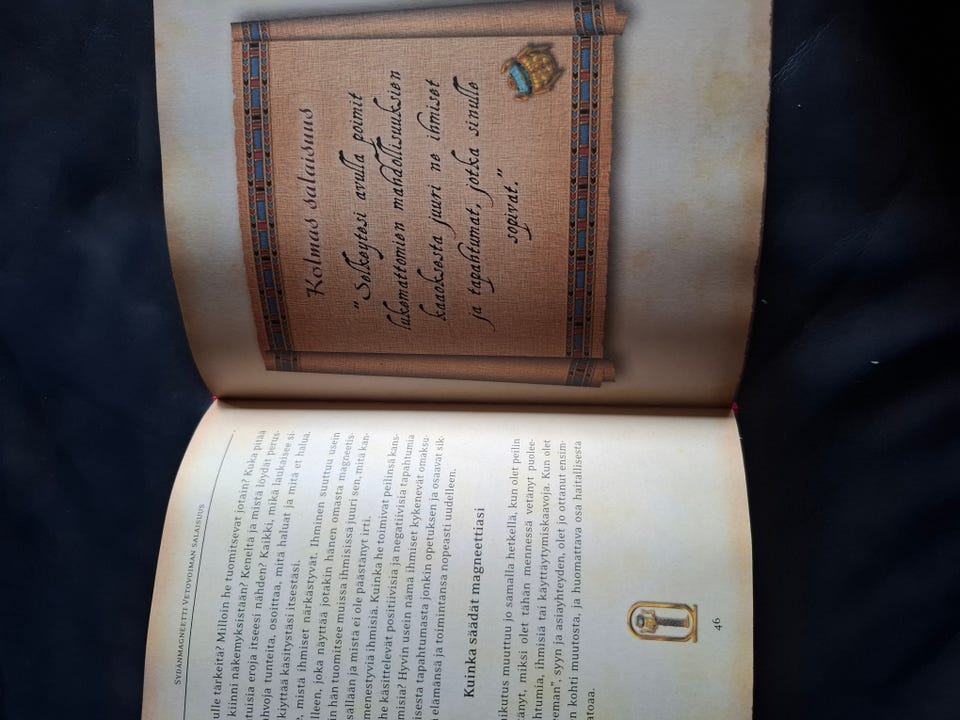 SYDÄNMAGNEETTI VETOVOIMAN SALAISUUS
ulle tärkeitä? Milloin he tuomitsevat jotain? Kuka pitää
kiinni näkemyksistään? Keneltä ja mistä löydät perus-
tuisia eroja itseesi nähden? Kaikki, mikä laukaisee si-
hvoja tunteita, osoittaa, mitä haluat ja mitä et halua.
käyttää käsitystäsi itsestäsi.
, mistä ihmiset närkästyvät. Ihminen suuttuu usein
lleen, joka näyttää jotakin hänen omasta magneetis-
in hän tuomitsee muissa ihmisissä juuri sen, mitä kan-
sällään ja mistä ei ole päästänyt irti.
menestyviä ihmisiä. Kuinka he toimivat peilinsä kans-
he käsittelevät positiivisia ja negatiivisia tapahtumia
misia? Hyvin usein nämä ihmiset kykenevät omaksu-
isesta tapahtumasta jonkin opetuksen ja osaavat sik-
elämänsä ja toimintansa nopeasti uudelleen.
Kuinka säädät magneettiasi
ikutus muuttuu jo samalla hetkellä, kun olet peilin
tänyt, miksi olet tähän mennessä vetänyt puolee-
htumia, ihmisiä tai käyttäytymiskaavoja. Kun olet
eman", syyn ja asiayhteyden, olet jo ottanut ensim-
n kohti muutosta, ja huomattava osa haitallisesta
atoaa.
46
Kolmas salaisuus
"Selkeytesi avulla poimit
lukemattomien mahdollisuuksien
kaaoksesta juuri ne ihmiset
ja tapahtumat, jotka sinulle
sopivat."